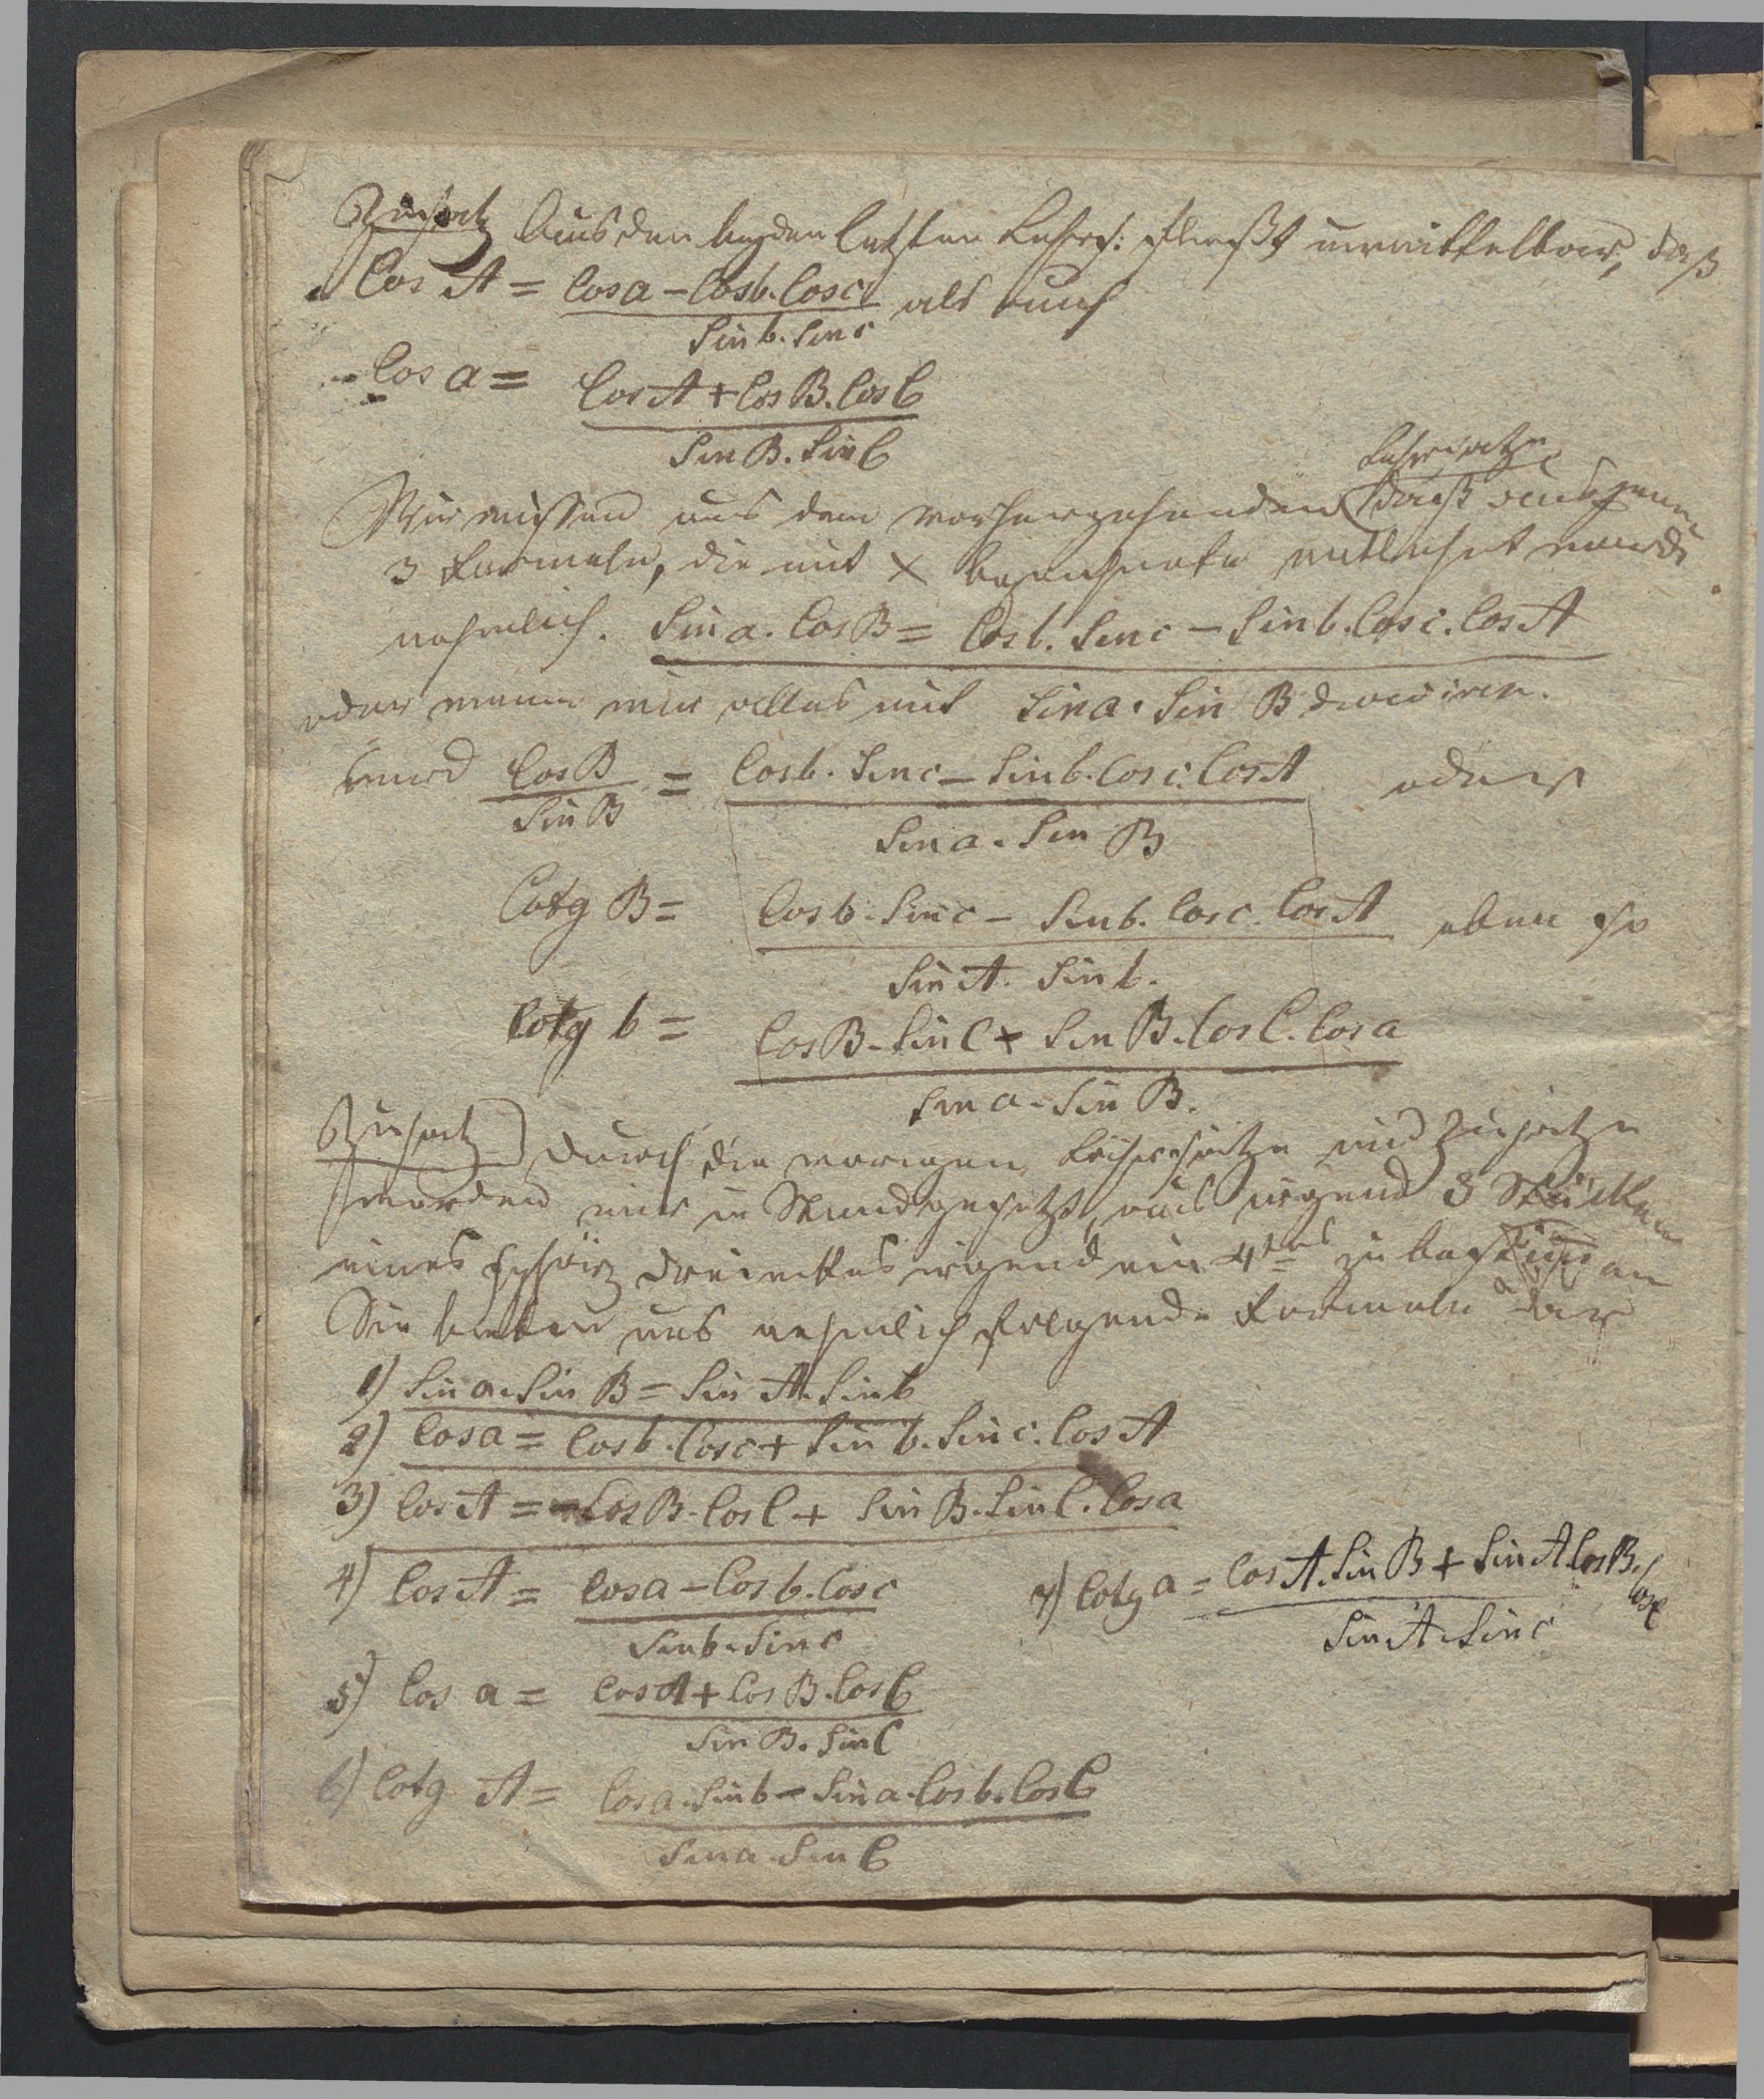 Zusatz Aus den beyden letzten Lehrs: fließt unmittelbar, daß
Cos A = Cos a – Cos b. Cos c als auch
Sin b. Sin c
Cos a =
Cos A + Cos B. Cos C
Sin B. Sin C
Lehrsatze
Wir wissen aus dem vorhergehenden daß aus jenen
3 Formeln, die mit × bezeichnete entlehnt wurde
nehmlich. Sin a. Cos B = Cos b. Sin c – Sin b. Cos c. Cos A
oder wenn wir alles mit Sin a. Sin B
wird Cos B = Cos b. Sin c – Sin b. Cos c. Cos A oder
Sin B
Sin a. Sin B
Cotg B = Cos b. Sin c – Sin b. Cos c. Cos A eben so
Sin A. Sin b.
Cotg b = Cos B. Sin C + Sin B. Cos C. Cos a
Sin a. Sin B.
Zusatz) Durch die vorigen Lehrsätze und Zusatze
werden wir in Stand gesetzt, aus irgend 3 Stücken
eines sphär dreieckes irgend ein 4tes zu
Sie bieten uns nehmlich folgende Formeln dar
1) Sin a. Sin B = Sin A. Sin b
2) Cos a = Cos b. Cos c + Sin b. Sin c. Cos A
3) Cos A = – Cos B. Cos C + Sin B. Sin C. Cos a
4) Cos A = Cos a – Cos b. Cos c
Sin b. Sin c
7) Cotg a = Cos A. Sin B + Sin A. Cos B.
Cos c
Sin A. Sin c
5) Cos a = Cos A + Cos B. Cos C
Sin B. Sin C
6) Cotg A = Cos a. Sin b – Sin a. Cos b. Cos C
Sin a. Sin C